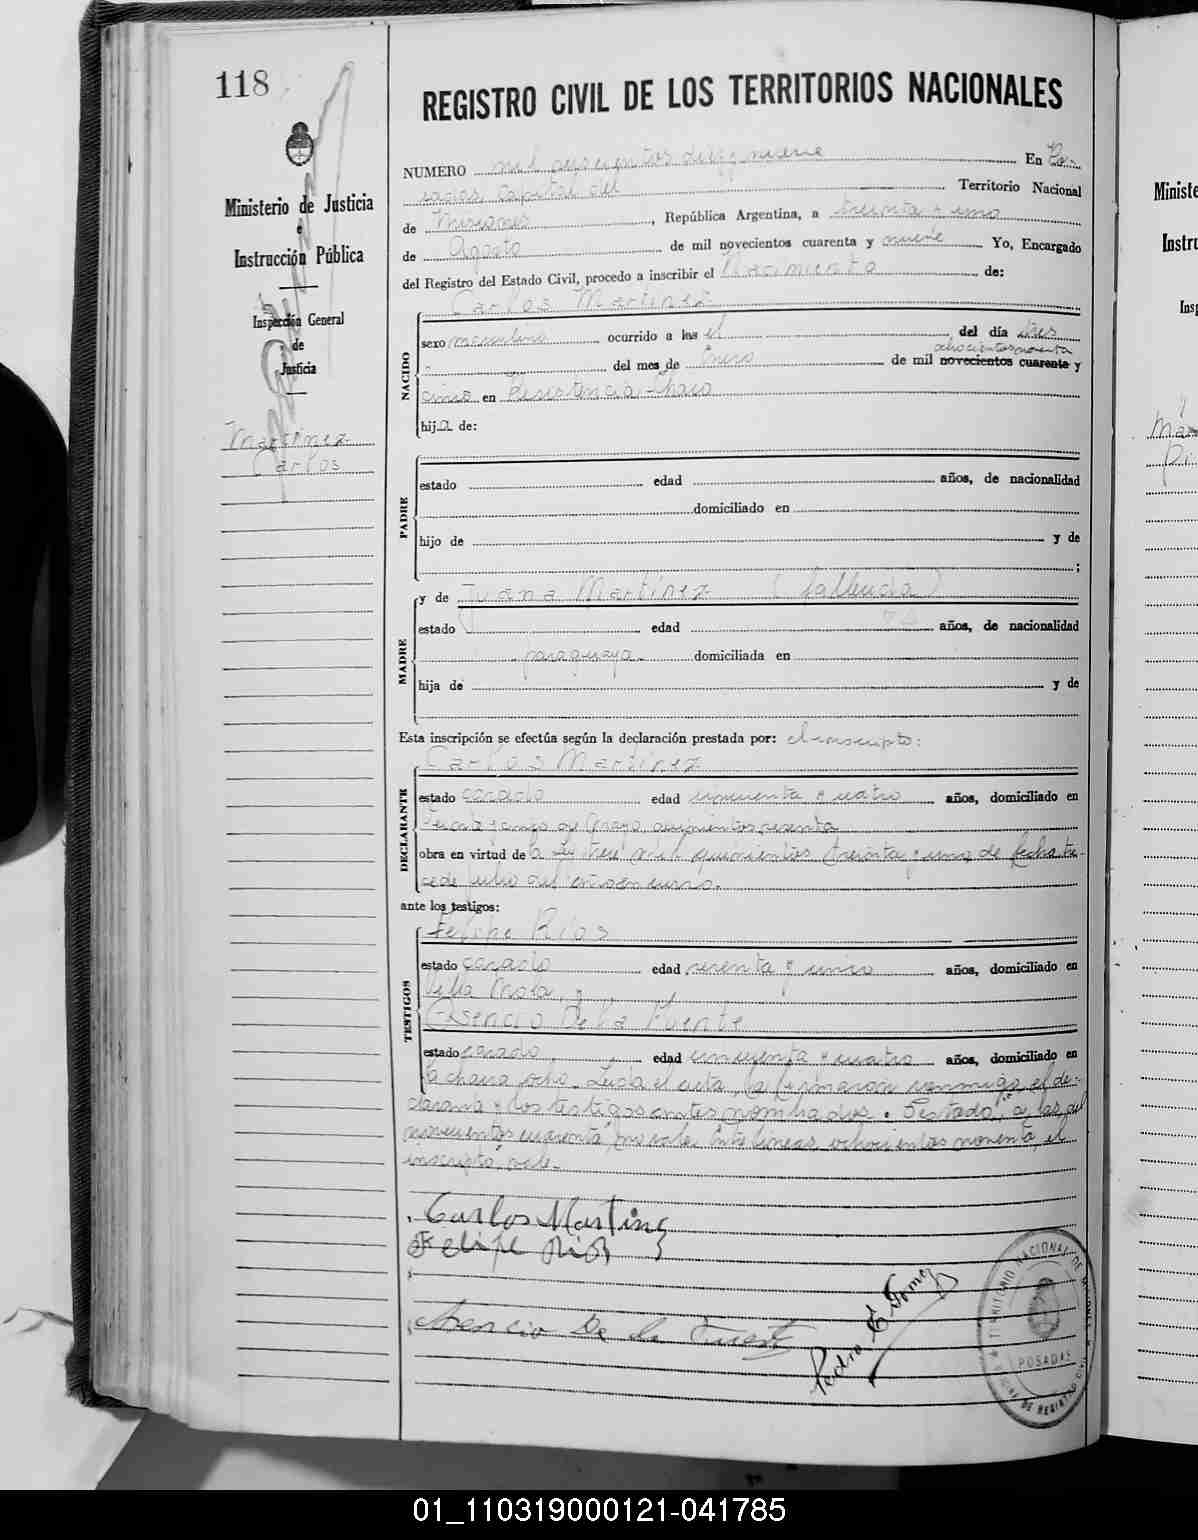 118
REGISTRO CIVIL DE LOS TERRITORIOS NACIONALES
Ministerio de Justicia
e
Instrucción Pública
Inspección General
de
Justicia
Martinez
Carlos
NUMERO mil diez nueve En Po-
sadas, capital del Territorio Nacional
de Misiones, República Argentina, a treinta y uno
de Agosto de mil novecientos cuarenta y nueve Yo, Encargado
del Registro del Estado Civil, procedo a inscribir el Nacimiento de:
Carlos Martinez
NACIDO
sexo masculino ocurrido a las el del día tres
ochocientos noventa
del mes de Enero de mil novecientos cuarenta y
cinco en Resistencia-Chaco
hijo de:
PADRE
estado edad años, de nacionalidad
domiciliado en
hijo de y de
;
MADRE
y de Juana Martínez (fallecida)
estado edad años, de nacionalidad
paraguaya domiciliada en
hija de y de
Esta inscripción se efectúa según la declaración prestada por: el inscripto:
Carlos Martinez
DECLARANTE
estado casado edad cincuenta y cuatro años, domiciliado en
de Mayo quinientos sesenta
obra en virtud de la Ley trece mil quinientos treinta y uno de fecha tre-
ce de Julio del año en curso.
ante los testigos:
TESTIGOS
Felipe Rios
estado casado edad sesenta y cinco años, domiciliado en
Villa y
Asencio De la Fuente
estado casado edad cincuenta y cuatro años, domiciliado en
la chacra ocho. Leída el acta, la firmaron conmigo el de-
clarante y los testigos antes nombrados. Testado, "a las, del
novecientos cuarenta", no vale. Entre líneas, ochocientos noventa, el
inscripto, vale.
Carlos Martinez
Felipe Rios
Asencio De la Fuente
Pedro E Gomez
TERRITORIO NACIONAL DE MISIONES
POSADAS
DE REGISTRO CIVIL
Ministe
Instru
Insp
01_110319000121-041785